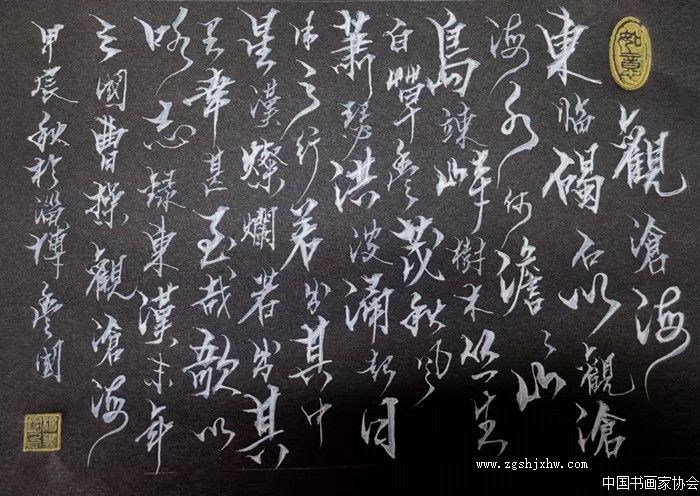 如意
觀滄海
東臨碣石以觀滄
海水何澹澹山
島竦峙樹木丛生
百草豐茂秋風
蕭瑟洪波涌起日
月之行若出其中
星漢燦爛若出其
里幸甚至哉歌以
咏志録東漢末年
三國曹操觀滄海
甲辰秋於淄博豐國
www.zgshjxhw.com
中国书画家协会